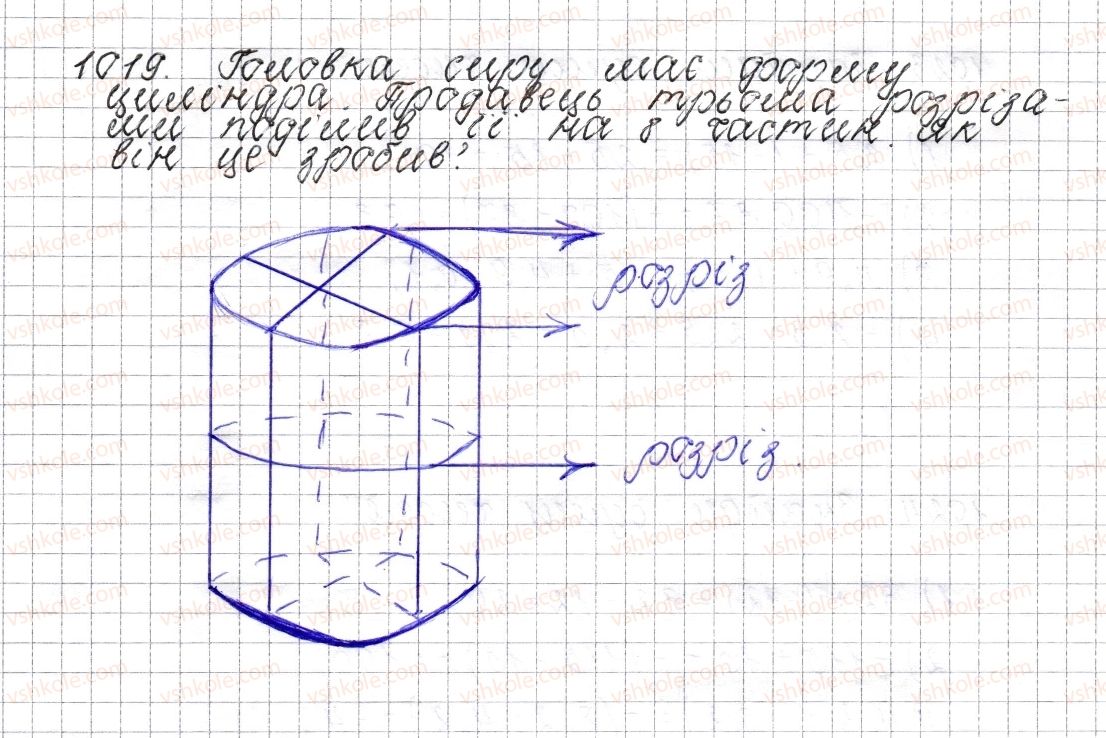 1019. Головка сиру має форму
циліндра. Продавець трьома розріза-
ми поділив її на 8 частин. Як
він це зробив?
розріз
розріз.